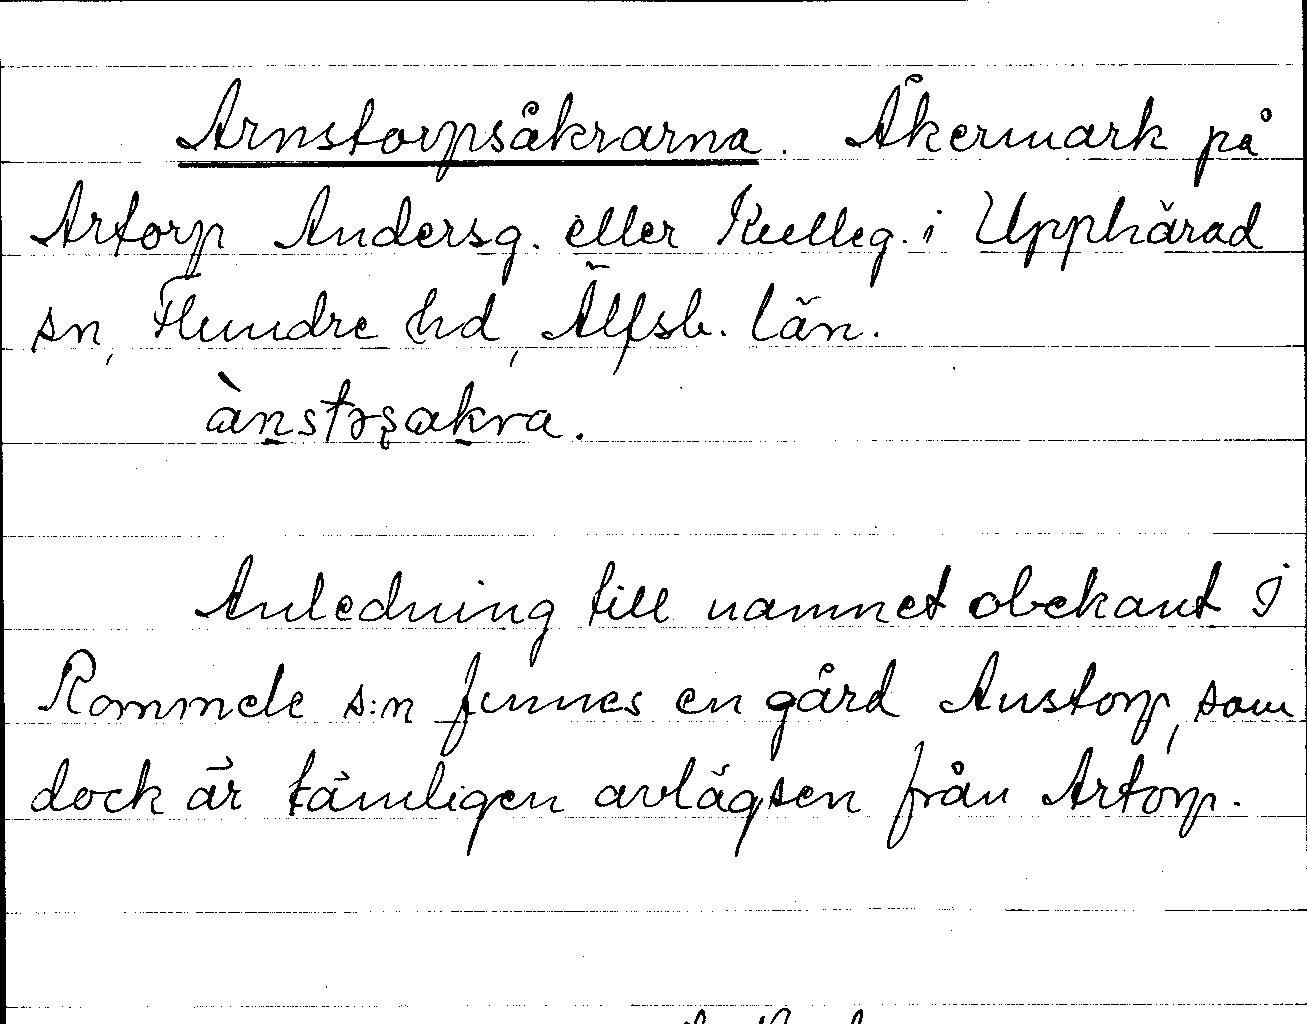 Arnstorpsåkrarna. Åkermark på
Artorp Andersg. eller Kulleg. i Upphärad
sn, Flundre hd, Älfsb. län.
ànstrsakra.
Anledning till namnet obekant I
Rommele s:n finnes en gård Anstorp, som
dock är tämligen avlägsen från Artorp.